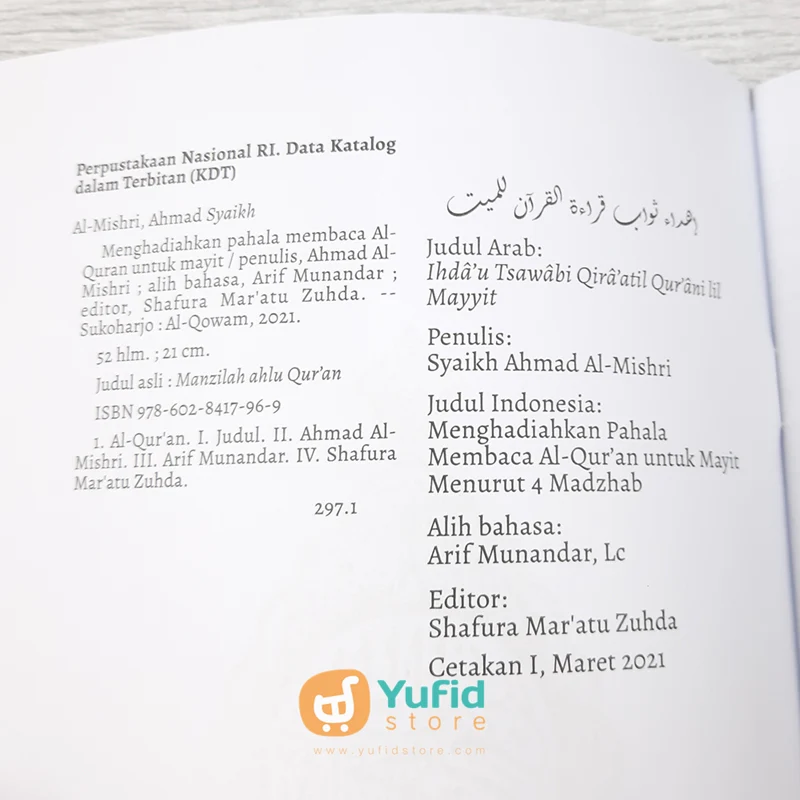 Perpustakaan Nasional RI. Data Katalog
dalam Terbitan (KDT)
Al-Mishri, Ahmad Syaikh
Menghadiahkan pahala membaca Al-
Quran untuk mayit / penulis, Ahmad Al-
Mishri ; alih bahasa, Arif Munandar ;
editor, Shafura Mar'atu Zuhda. --
Sukoharjo : Al-Qowam, 2021.
52 hlm. ; 21 cm.
Judul asli : Manzilah ahlu Qur'an
ISBN 978-602-8417-96-9
1. Al-Qur'an. I. Judul. II. Ahmad Al-
Mishri. III. Arif Munandar. IV. Shafura
Mar'atu Zuhda.
297.1
إهداء ثواب قراءة القرآن للميت
Judul Arab:
Ihdâ'u Tsawâbi Qirâ'atil Qur'âni lil
Mayyit
Penulis:
Syaikh Ahmad Al-Mishri
Judul Indonesia:
Menghadiahkan Pahala
Membaca Al-Qur'an untuk Mayit
Menurut 4 Madzhab
Alih bahasa:
Arif Munandar, Lc
Editor:
Shafura Mar'atu Zuhda
Cetakan I, Maret 2021
Yufid
store
www.yufidstore.com